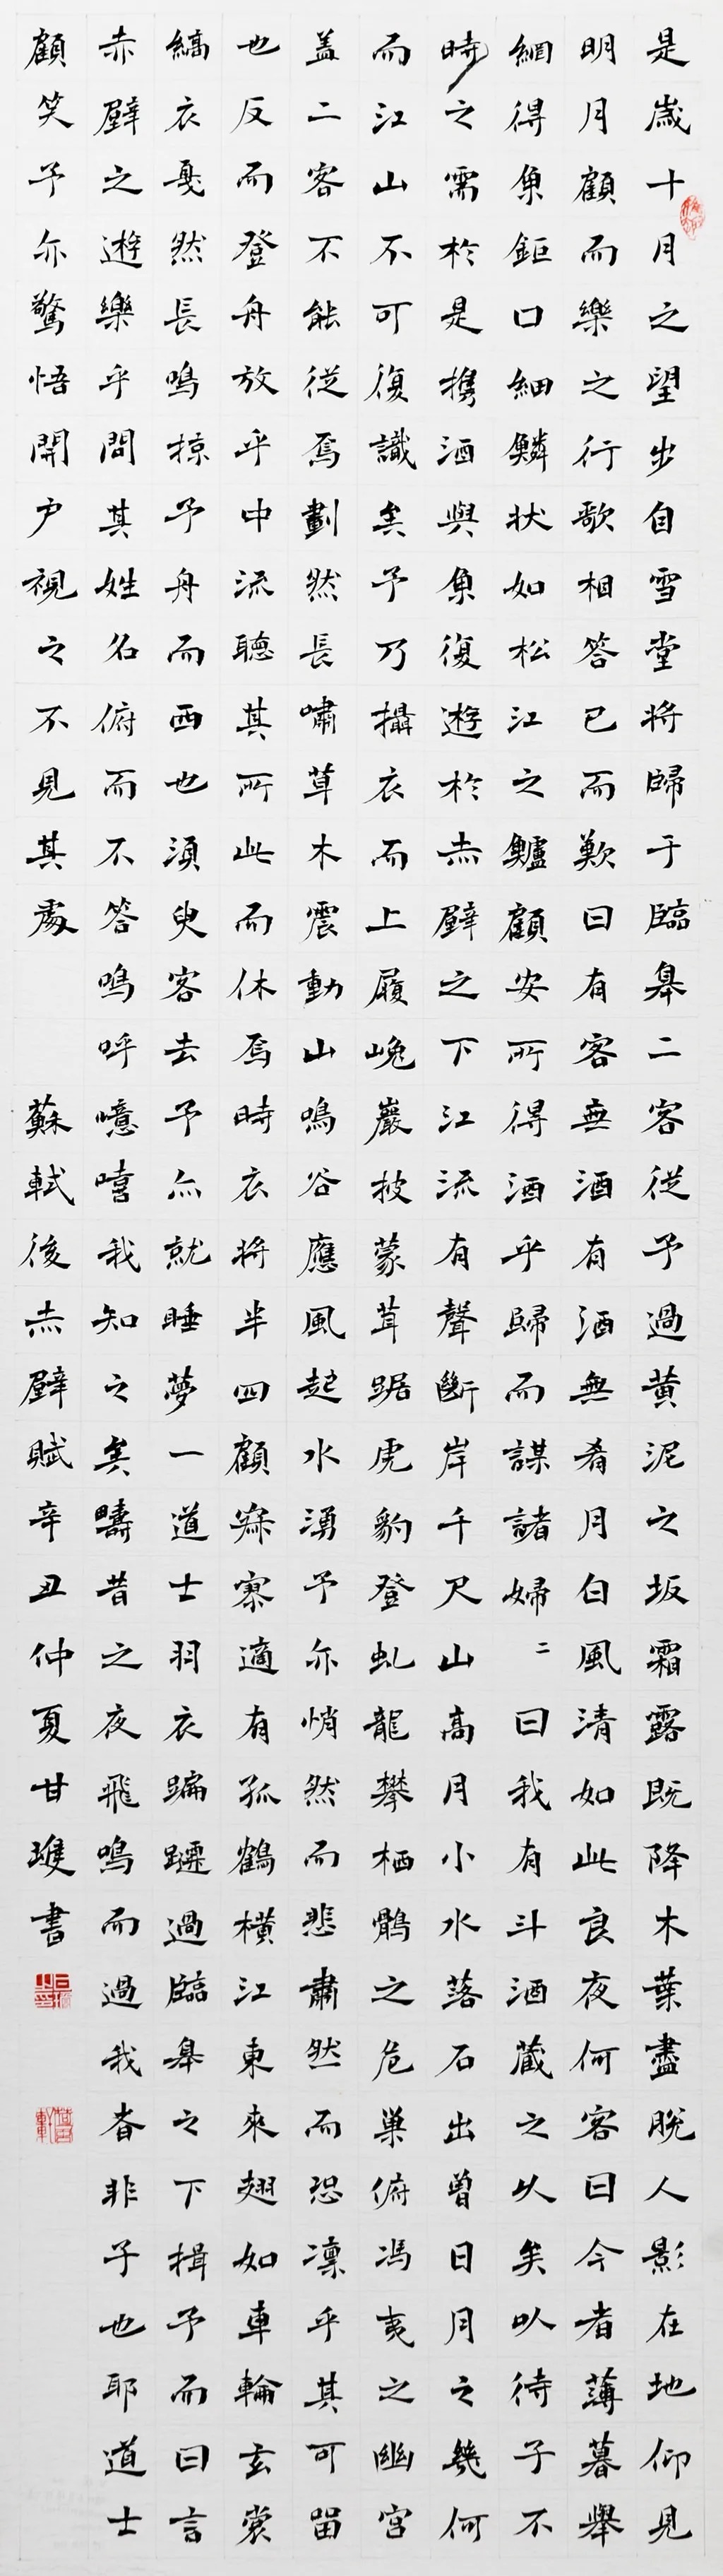 是歲十月之望步自雪堂將歸于臨皋二客從予過黃泥之坂霜露既降木葉盡脫人影在地仰見
明月顧而樂之行歌相答已而歎曰有客無酒有酒無肴月白風清如此良夜何客曰今者薄暮舉
網得魚鉅口細鱗狀如松江之鱸顧安所得酒乎歸而謀諸婦二曰我有斗酒藏之久矣以待子不
時之需於是攜酒與魚復遊於赤壁之下江流有聲斷岸千尺山高月小水落石出曾日月之幾何
而江山不可復識矣予乃攝衣而上履巉巖披蒙茸踞虎豹登虬龍攀栖鶻之危巢俯馮夷之幽宮
蓋二客不能從焉劃然長嘯草木震動山鳴谷應風起水湧予亦悄然而悲肅然而恐凜乎其可留
也反而登舟放乎中流聽其所此而休焉時衣將半四顧寂寥適有孤鶴橫江東來翅如車輪玄裳
縞衣戛然長鳴掠予舟而西也須臾客去予亦就睡夢一道士羽衣蹁躚過臨皋之下揖予而曰言
赤壁之遊樂乎問其姓名俯而不答鳴呼噫嘻我知之矣疇昔之夜飛鳴而過我者非子也耶道士
顧笑予亦驚悟開戶視之不見其處 蘇軾後赤壁賦辛丑仲夏甘書